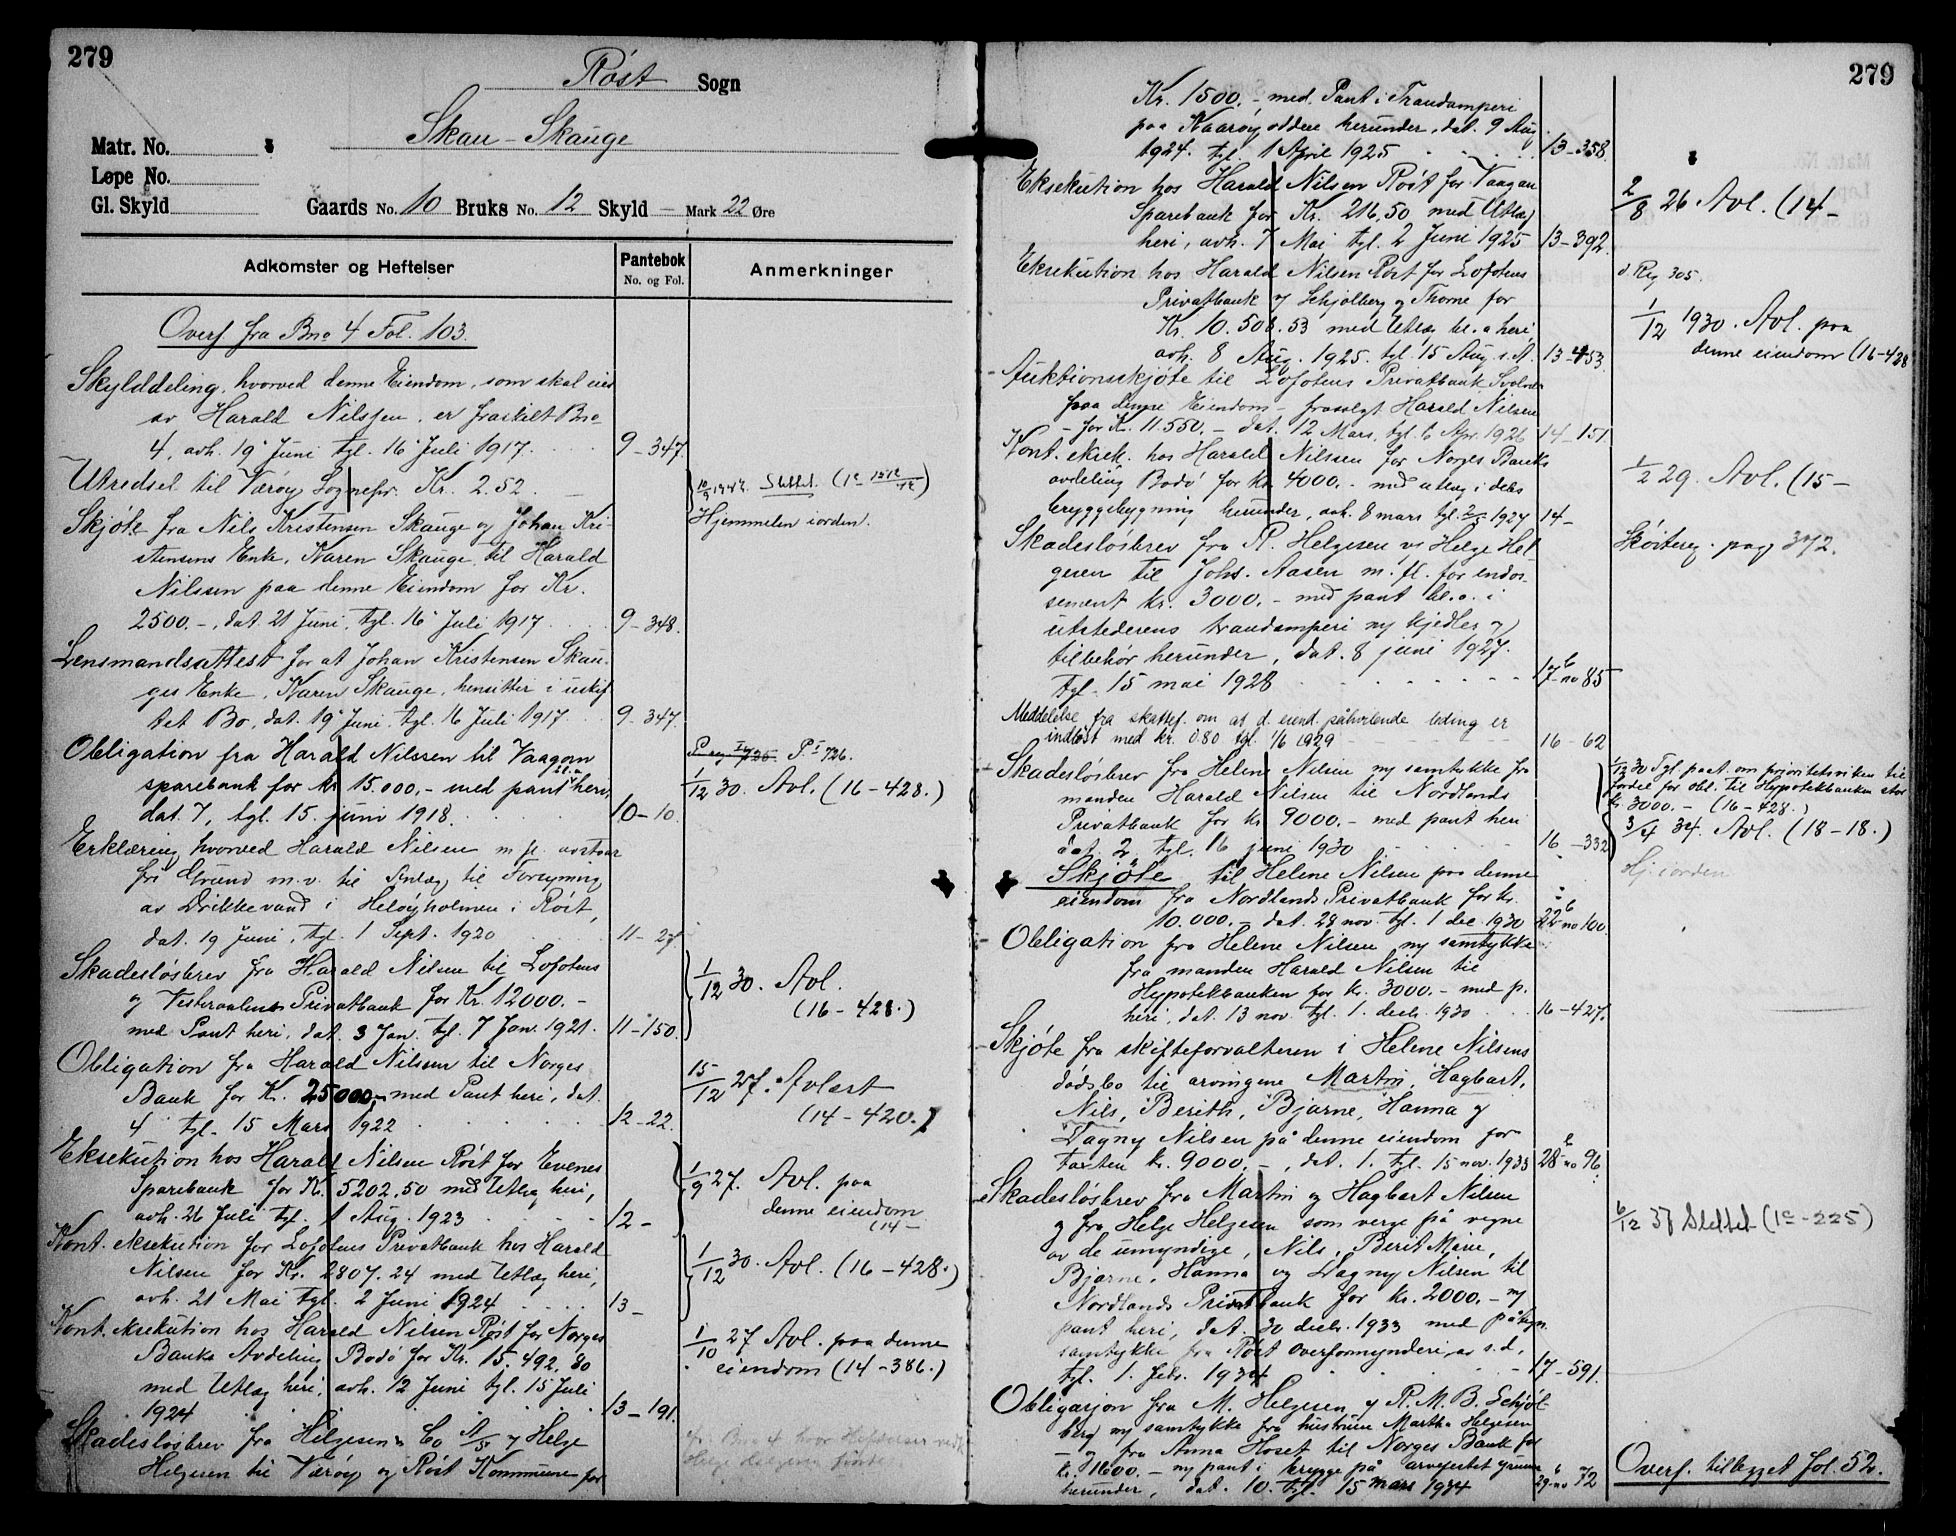 279
Røst Sogn
Skau - Skauge
Matr. No.
Løpe No.
Gl. Skyld
Gaards No. 10 Bruks No. 12 Skyld — Mark 22 Øre
Adkomster og Heftelser
Pantebok
No. og Fol.
Anmerkninger
Overf fra Bno 4 Fol. 103.
Skylddeling, hvorved denne Eiendom, som skal eies
av Harald Nilssen, er fraskilt Bno
4, avh. 19 Juni tgl. 16 Juli 1917. 9-347.
Utredsel til Værøy Sognepr. Kr. 2.52.
Slettet.
Hjemmelen iorden.
Skjøte fra Nils Kristensen Skauge og Johan Kri-
stensens Enke, Karen Skauge til Harald
Nilssen paa denne Eiendom for Kr.
2500.-, dat. 21 Juni, tgl. 16 Juli 1917 9-348.
Lensmandsattest for at Johan Kristensen Skau-
ges Enke, Karen Skauge, hensitter i uskif
tet Bo, dat. 19 Juni tgl. 16 Juli 1917 9-347.
Obligation fra Harald Nilssen til Vaagan
sparebank for kr 15.000,- med pant bl.a. heri,
dat. 7, tgl. 15. juni 1918. 10-10.
P. I 726.
1/12 30. Avl. (16-428.)
Erklæring hvorved Harald Nilsen m fl. avstaar
fri Grund m.v. til Anlæg til Forsyning
av Drikkevand i Heløyholmen i Røst,
dat. 19 Juni, tgl. 1 Sept. 1920 11-27
Skadesløsbrev fra Harald Nilsen til Lofotens
og Vesteraalens Privatbank for Kr. 12000.-
med Pant heri, dat. 3 Jan. tgl. 7 Jan. 1921. 11-150.
1/12 30. Avl.
(16-428.)
Obligation fra Harald Nilssen til Norges
Bank for Kr. 25000,- med Pant heri, dat.
4 tgl. 15 Mars 1922 12-22.
15/12 27. Avlæst
(14-420.)
Eksekution hos Harald Nilsen Røst for Evenes
Sparebank for Kr. 5202,50 med Utlæg heri,
avh. 26 Juli tgl. 1 Aug. 1923 12-
1/9 27. Avl. paa
denne eiendom
(14-
Kont. eksekution for Lofotens Privatbank hos Harald
Nilsen for Kr. 2807.24 med Utlæg heri,
avh. 21 Mai tgl. 2 Juni 1924 13-
1/12 30. Avl. (16-428.)
Kont. eksekution hos Harald Nilsen Røst for Norges
Banks Avdeling Bodø for Kr. 15.492.80
med Utlæg heri, avh. 12 Juni tgl. 15 Juli
1924 13-191.
1/10 27 Avl. paa denne
eiendom (14-386.)
Skadesløsbrev fra Helgesen & Co A/S og Helge
Helgesen til Værøy og Røst Kommune for
279
Kr. 1500.- med Pant i Trandamperi
paa Kaarøyodden herunder, dat. 9 Aug
1924. tgl. 1 April 1925 13-358.
Eksekution hos Harald Nilsen Røst for Vaagan
Sparebank for Kr. 216,50 med Utlæg
heri, avh. 7 Mai tgl. 2 Juni 1925 13-392.
2/8 26 Avl. (14-
Eksekution hos Harald Nilsen Røst for Lofotens
Privatbank og Schjølberg og Thorne for
Kr. 10.508.53 med Utlæg bl. a heri,
avh. 8 Aug. 1925. tgl. 15 Aug. s.A. 13-453.
d. Reg 305.
1/12 1930. Avl. paa
denne eiendom (16-428
Auktionsskjøte til Lofotens Privatbank Svolvær
paa denne Eiendom - frasolgt Harald Nilsen
- for Kr. 11.550.- dat. 12 Mars, tgl. 6 Apr. 1926 14-151
Kont. eksek. hos Harald Nilssen for Norges Banks
avdeling Bodø for kr 4000.- med utlæg i dets
bryggebygning herunder, avh. 8 mars tgl. 1927 14-
1/2 29. Avl. (15-
Skadesløsbrev fra R. Helgesen vs Helge Hel
gesen til Johs. Aasen m. fl. for endos-
sement kr. 3000.- med pant bl.a. i
utstederens trandamperi ny kjedler og
tilbehør herunder, dat. 8 juni 1927.
tgl. 15 mai 1928 17b no 85
Skøitereg. pag 372.
Meddelelse fra skattef. om at d. eiend. påhvilende leding er
indløst med kr. 0.80 tgl. 1/6 1929 16-62
Skadesløsbrev fra Helene Nilsen m/ samtykke fra
manden Harald Nilsen til Nordlands
Privatbank for kr 9000.- med pant heri
dat. 2, tgl. 16 juni 1930 16-332
1/12 30 Tgl paat. om prioritetsviken til
fordel for obl. til Hypotekbanken stor
kr. 3000.- (16-428.)
3/4 34. Avl. (18-18.)
Hj. iorden
Skjøte til Helene Nilsen paa denne
eiendom fra Nordlands Privatbank for kr.
10.000.- dat. 28 nov. tgl. 1 dec. 1930 22b no 100.
Obligation fra Helene Nilsen m/ samtykke
fra manden Harald Nilsen til
Hypotekbanken for kr. 3000.- med p.
heri, dat. 13 nov. tgl. 1. decb. 1930 16-427.
Skjøte fra skifteforvalteren i Helene Nilsens
dødsbo til arvingene Martin, Hagbart,
Nils, Berith, Bjarne, Hanna og
Dagny Nilsen på denne eiendom for
taksten kr. 9000.-, dat. 1. tgl. 15 nov. 1933 28b no 96.
Skadesløsbrev fra Martin og Hagbart Nilsen
og fra Helge Helgesen som verge på vegne
av de umyndige, Nils, Berit Marie,
Bjarne, Hanna og Dagny Nilsen til
Nordlands Privatbank for kr. 2000.- m/
pant heri, dat. 30 decb. 1933 med påtegn.
samtykke fra Røst overformynderi, av s.d.
tgl. 1. febr. 1934 17-591.
6/12 37 Slettet (19-225)
Obligasjon fra M. Helgesen og R. M. B. Schjøl-
berg m/ samtykke fra hustruen Martha Helgesen
- og fra Anna Hoset til Norges Bank for
kr. 1600.- m/ pant i brygge på arvefestet grunn
herunder, dat. 10. tgl. 15 mars 1934 29b no 72
Overf. tillegget fol. 52.